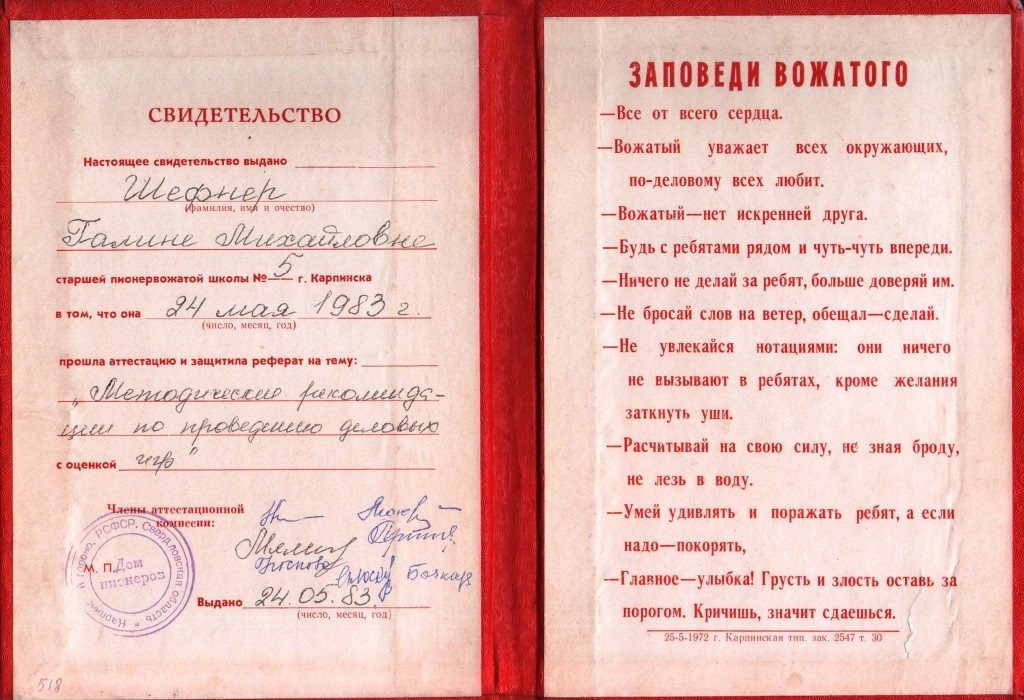 СВИДЕТЕЛЬСТВО
Настоящее свидетельство выдано
Шефнер
(фамилия, имя и очество)
Галине Михайловне
старшей пионервожатой школы № 5 г. Карпинска
в том, что она 24 мая 1983 г.
(число, месяц, год)
прошла аттестацию и защитила реферат на тему:
„Методические рекоменда-
ции по проведению деловых
с оценкой игр"
Члены аттестационной
комиссии:
М. П.
Дом
пионеров
гороно. РСФСР. Свердловская область * Карпинс
Выдано 24.05.83.
(число, месяц, год)
518
ЗАПОВЕДИ ВОЖАТОГО
—Все от всего сердца.
—Вожатый уважает всех окружающих,
по-деловому всех любит.
—Вожатый—нет искренней друга.
—Будь с ребятами рядом и чуть-чуть впереди.
—Ничего не делай за ребят, больше доверяй им.
—Не бросай слов на ветер, обещал—сделай.
—Не увлекайся нотациями: они ничего
не вызывают в ребятах, кроме желания
заткнуть уши.
—Расчитывай на свою силу, не зная броду,
не лезь в воду.
—Умей удивлять и поражать ребят, а если
надо—покорять,
—Главное—улыбка! Грусть и злость оставь за
порогом. Кричишь, значит сдаешься.
25-5-1972 г. Карпинская тип. зак. 2547 т. 30